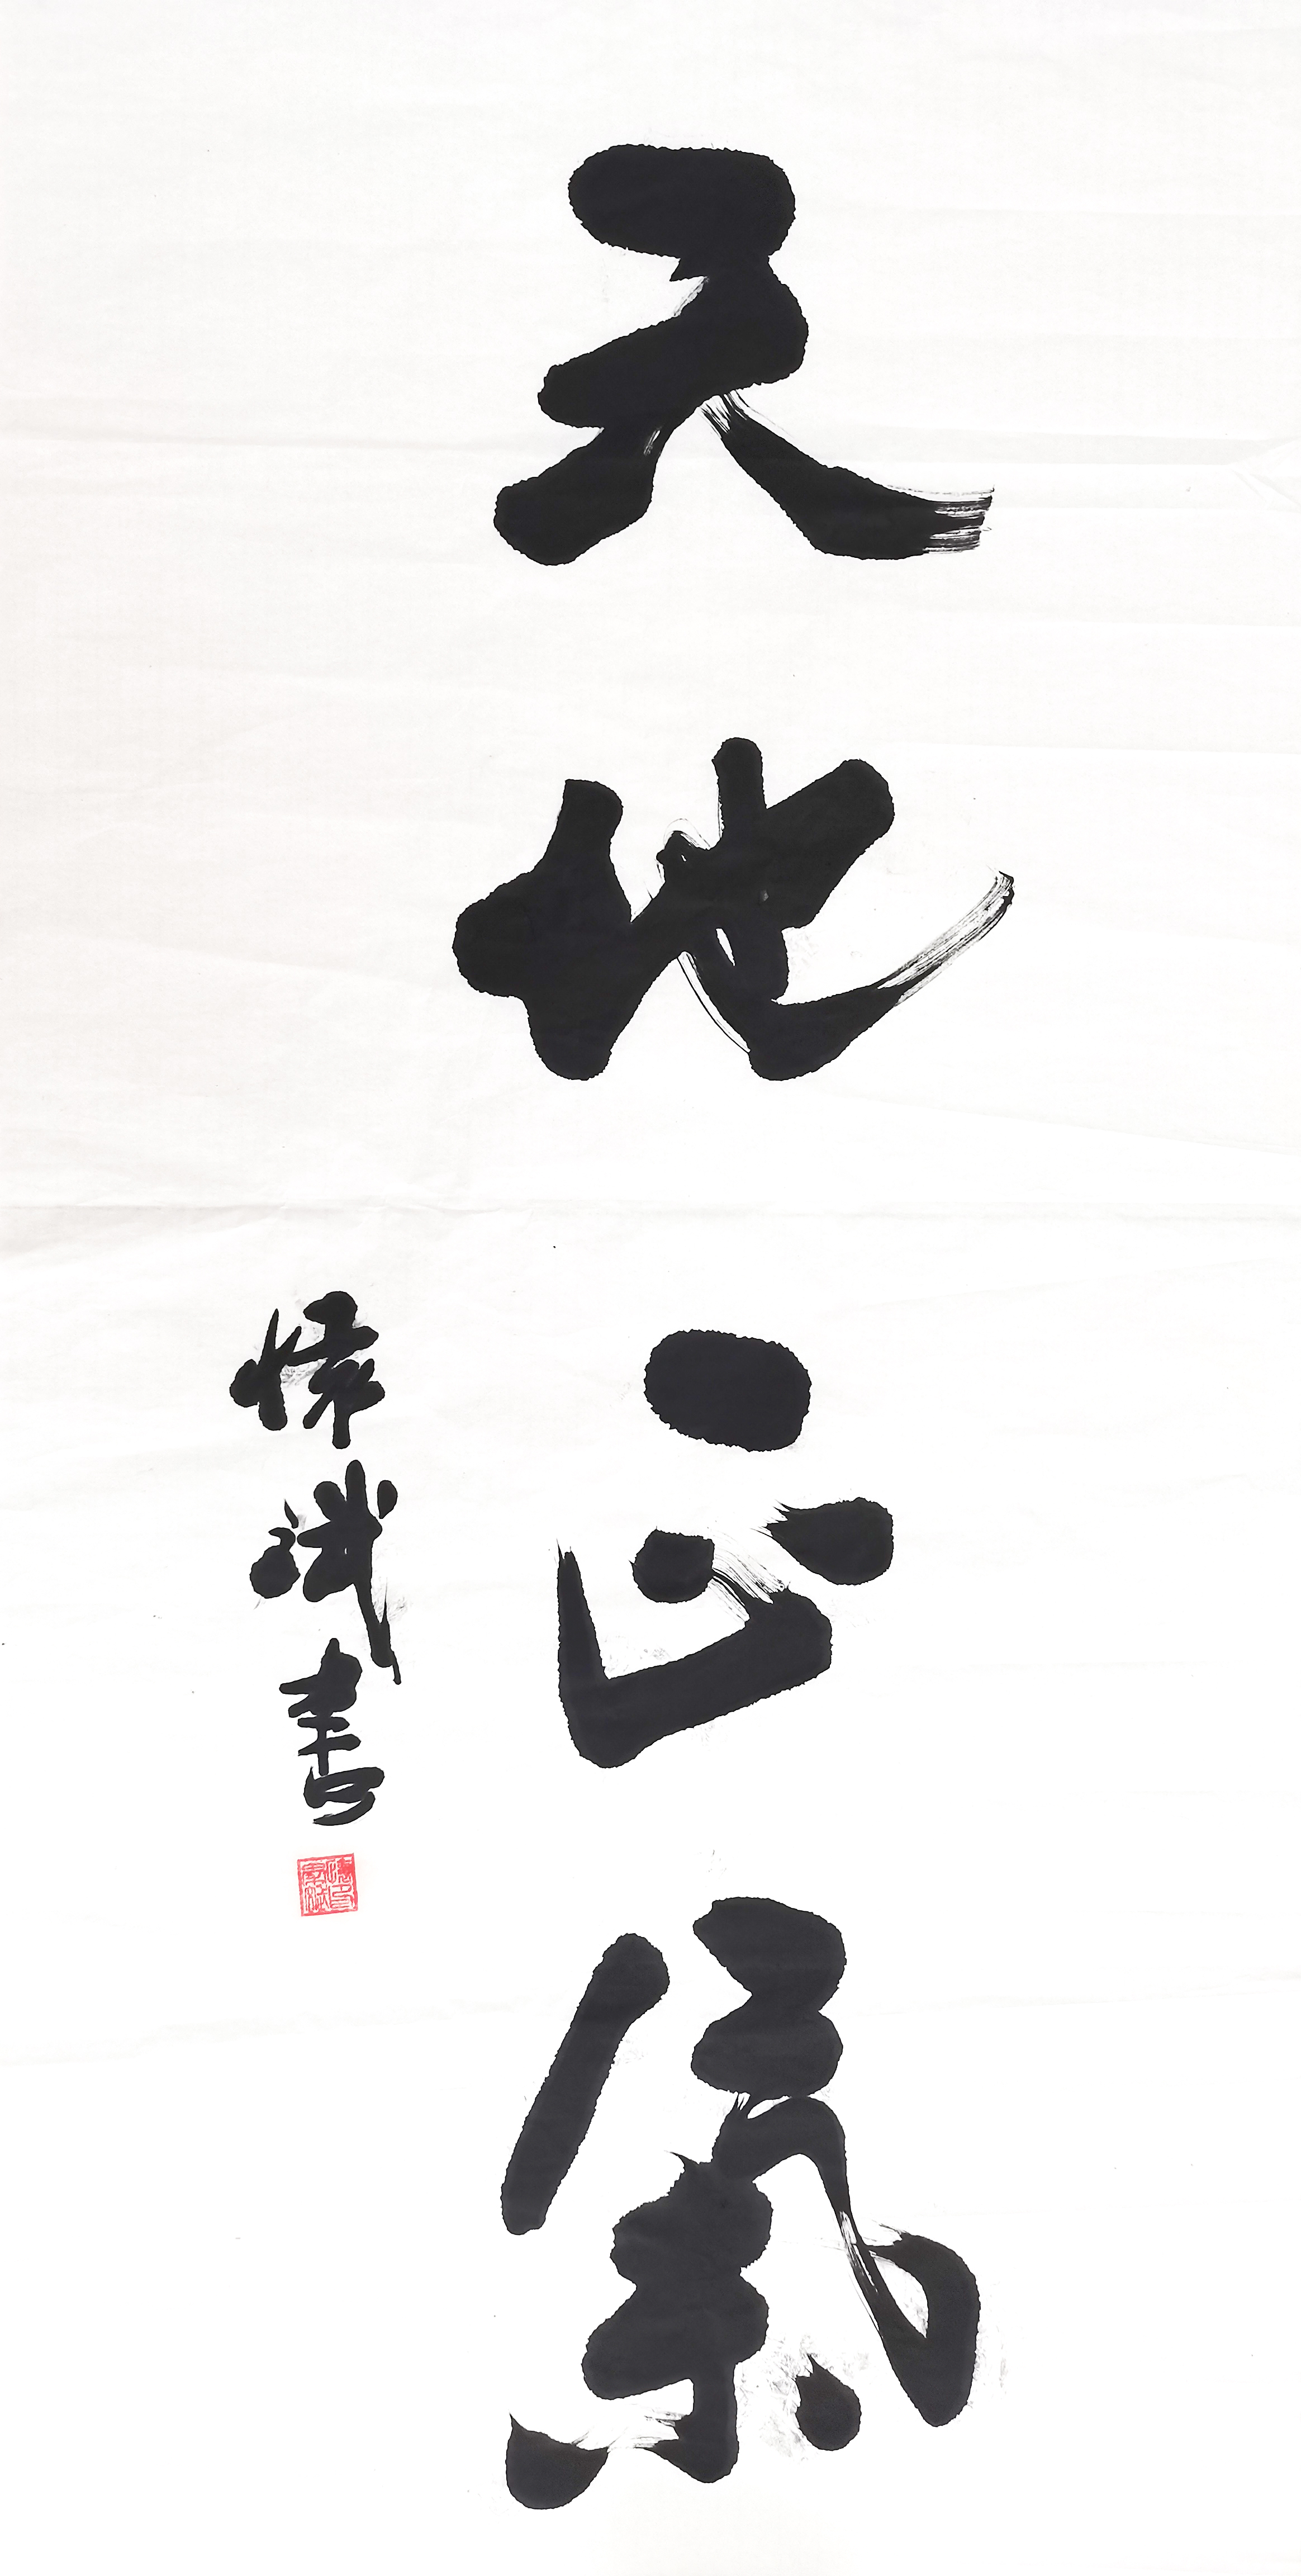 天地正氣
斌書